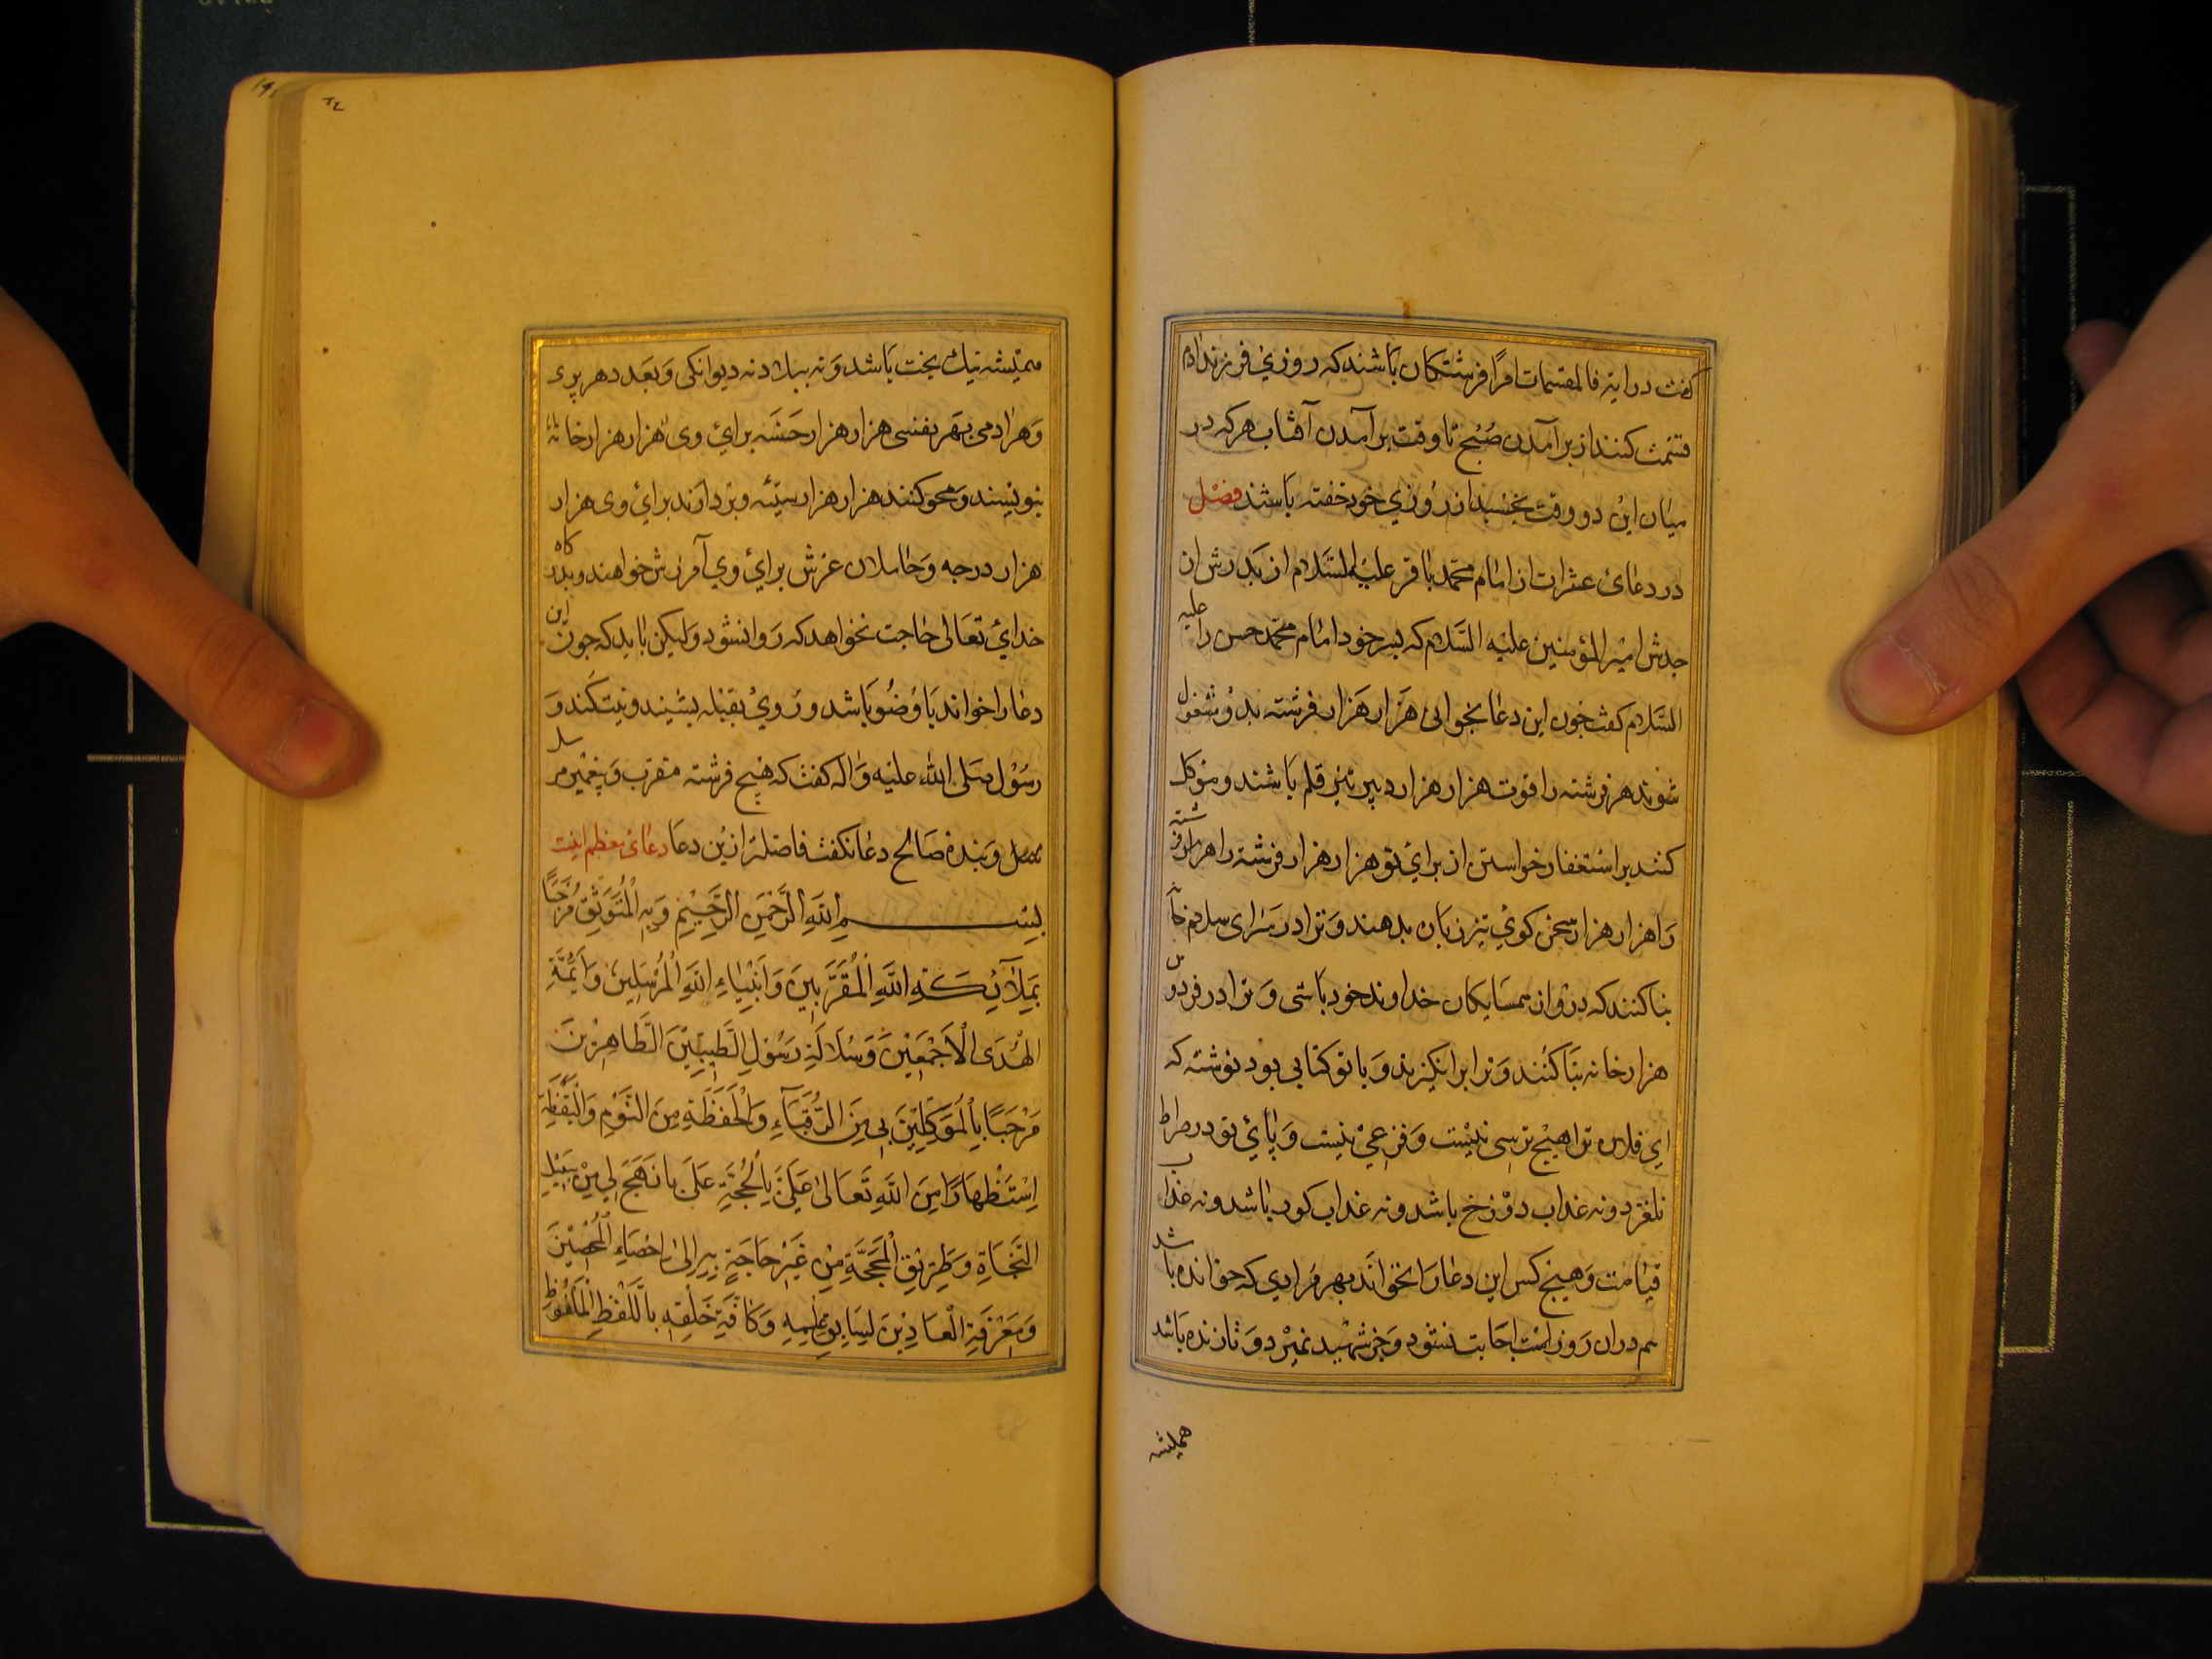 گفت در ایة فالمقسمات امرًا فرشتگان باشند که روزیٔ فرزندادم
قسمت کنند از برآمدن صُبح تا وقت برآمدن آفتاب هرکه در
میان این دو وقت بخسبد از رُوزی خود خفته باشند فصْل
در دعائ عشرات از امام محمّد باقر علیه السَّلام از بَدرش از
جدش امیر المؤمنین علیه السَّلام که بسر خود امام محمّد حسن را علیه
السَّلام گفت جون این دعا بخوانی هَزار هَزار فرشته بدُو مشغول
شوند هر فرشته را قوت هزار هزار دبیر تیز قلم باشند و موکل
کنند بر استغفار خواستن از برایٔ تو هزار هزار فرشته را هر فرشته
رَا هزار هزار سخن کویٔ تیز زبان بدهند وَ ترا در سَرای سلام خانه
بنا کنند که درْو از همسَایکان خداوند خود باشی وَ ترا در فردوس
هزار خانه بَنا کنُند وَ ترا بر انکیزند وَ با تو کتابی بود نوشته که
اي فلان ترا هیْچ ترسی نیْست وَ فزعیْ نیْست وَ پایٔ تو در صراط
نلغزد و نه عذاب دوْزخ باشد و نه عذاب کور باشد و نه عذاب
قیامت وَ هیْچ کس این دعا رَا نخوانَد بهر مرادي که خوانده باشد
هم دران رَوز است اجابت نشود وَ جز شهید نمیرْد وَ تا زنده باشد
همیشه
همیْشه نیك بخت بَاشد وَ نه ببلا و نه دیوانکی وَ بعَد دهر پری
وَ هرادمی بهَر نفسی هزار هزار حَسَنه برایٔ وی هزار هزار خانه
بنویسند وَ محو کنند هزار هزار سیّئه و بردارند برایٔ وی هزار
هزار درجه وَ حاملان عرَش برایٔ وي آمرزش خواهند و بدرکاه
خدایٔ تعَالی حاجت نخواهد که رَوا نشود وَلیکن باید که جون این
دعا را خواند بَا وُضُو بَاشد و رُویْ بقبله بنشیند و نیت کَند وَ
رسُوْل صلی الله علیه وَاله کفت که هیْچ فرشته مقرب وَ پیغمبْر مرسل
وَ بندهٔ صَالح دعا نکفت فاضلتر ازیْن دعَا دعائ معظم اینست
بِسْمِ اللهِ الرَّحْمَنِ الرَّحِيْمِ وَبِهِ الْمُتَوَثِّقُ مَرْحَبًا
بِمَلآئِكَةِ اللهِ الْمُقَرَّبِيْنَ وَاَنْبِيَاءِ اللهِ الْمُرْسَلِيْنَ وَاَئِمَّةِ
الْهُدَى الْاَجْمَعِيْنَ وَسُلَالَةِ رَسُوْلِ الطَّيِّبِيْنَ الطَّاهِرِيْنَ
مَرْحَبًا بِالْمُوَكَّلِيْنَ بِي مِنَ الرُّقَبَآءِ وَالْحَفَظَةِ مِنَ النَّوْمِ وَالْيَقَظَةِ
اِسْتِظْهَارًا مِنَ اللهِ تَعَالَىٰ عَلَيَّ بِالْحُجَّةِ عَلَىَ مَا نَهَجَ لِي مِنْ سَبِيْلِ
النَّجَاةِ وَطَرِيْقِ الْمَحَجَّةِ مِنْ غَيْرِ حَاجَةٍ بِهِ اِلَىٰ اِحْصَاءِ الْمُحْصِيْنَ
وَمَعْرِفَةِ الْعَادِّيْنَ لِسَابِقِ عِلْمِهِ وَكَافَّةِ خَلْقِهِ بِاللَّفْظِ الْمَلْفُوْظِ